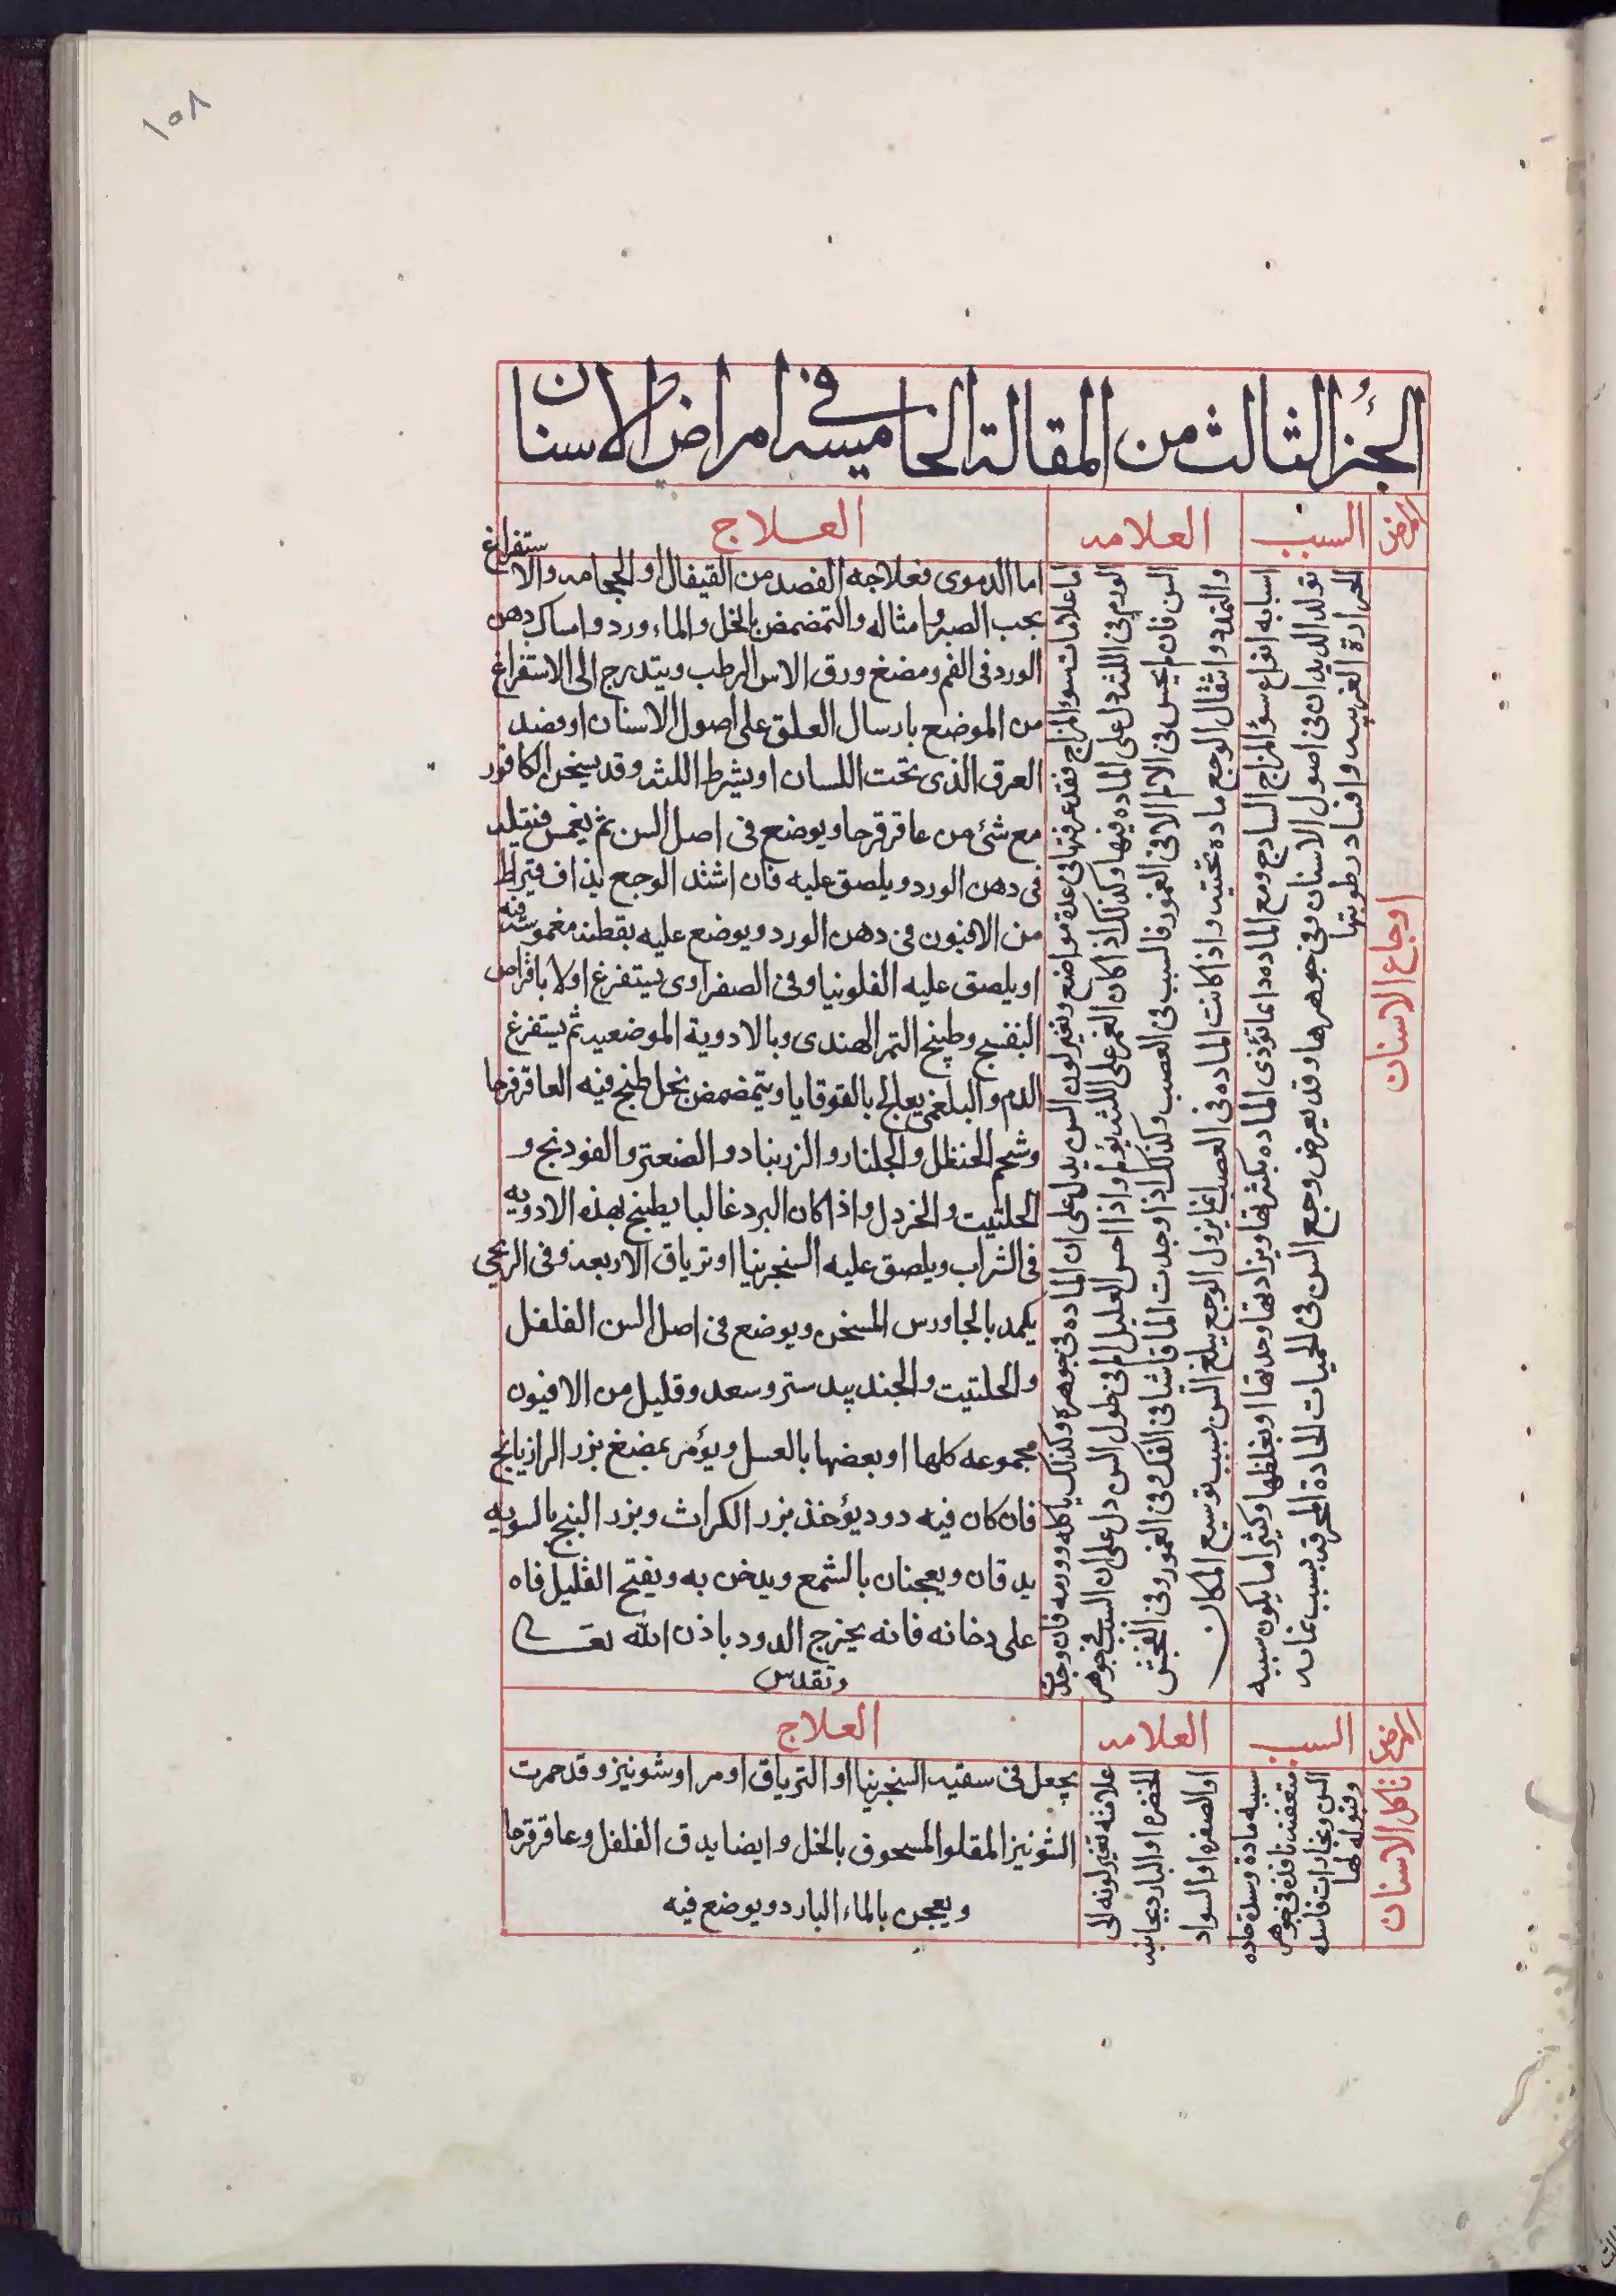 ١٥٨
الجزء الثالث من المقالة الخامسه في امراض الاسنان
المرض
السبب
العلامه
العلاج
اوجاع الاسنان
اسبابه انواع سؤ المزاج الساذج ومع الماده وانما تؤذى الماده بكثرتها ويزاد بها وحدتها او بغلظها وكثيرا ما يكون سببه
تولد الديدان فى اصول الاسنان وفى جوهرها وقد يعرض وجع السن فى الحميات الحادة المحرقه بسبب غمانه
الحرارة الغريبه وافساد رطوبتها
اما علامات سوء المزاج فقد عرفتها فى عدة مواضع وتغير لون السن يدل على ان الماده فى جوهره وكذلك تاكله وورمه فان وجدت
الورم فى اللثه دل على الماده فيها وكذلك اذا كان الغمز على اللثه يؤلم واذا احس العليل الم فى طول السن دل على ان السبب فى جوهر
السن فان لم يحس فى الالم الا فى الغور فالسبب فى العصب وكذلك اذا وجدت الما فاشا فى الفك وفى الغور وفى الفحش
والتمدد واثقال الوجع ماده تحتيه واذا كانت الماده فى العصب انما يزول الوجع بقلع السن بسبب توسيع المكان
اما الدموى فعلاجه الفصد من القيفال او الحجامه والاستفراغ
بحب الصبر وامثاله والتمضمض بالخل والماء ورد وامساك دهن
الورد فى الفم ومضغ ورق الاس الرطب ويتدرج الى الاستفراغ
من الموضع بارسال العلق على اصول الاسنان او فصد
العرق الذى تحت اللسان او يشرط اللثه وقد يسخن الكافور
مع شئ من عاقرقرحا ويوضع فى اصل السن ثم يغمس فتيله
فى دهن الورد ويلصق عليه فان اشتد الوجع يذاف قيراط
من الافيون فى دهن الورد ويوضع عليه بقطنه مغموسه فيه
او يلصق عليه الفلونيا وفى الصفراوى يستفرغ اولا باقراص
البنفسج وطبيخ التمر الهندى وبالادوية الموضعيه ثم يستفرغ
الدم والبلغمى يعالج بالقوقايا ويتمضمض بخل طبخ فيه العاقرقرحا
وشحم الحنظل والجلنار والزرنباد والصعتر والفودنج و
الحلتيت والخردل واذا كان البرد غالبا يطبخ بهذه الادويه
فى الشراب ويلصق عليه السنجرنيا او ترياق الاربعه وفى الريحى
يكمد بالجاورس المسخن ويوضع فى اصل السن الفلفل
والحلتيت والجند بيدستر وسعد وقليل من الافيون
مجموعه كلها او بعضها بالعسل ويؤمر بمضغ بزر الرازيانج
فان كان فيه دود يؤخذ بزر الكراث وبزر البنج بالسويه
يدقان ويعجنان بالشمع ويدخن به ويفتح العليل فاه
على دخانه فانه يخرج الدود باذن الله تعالى
وتقدس
المرض
السبب
العلامه
العلاج
تاكل الاسنان
سببه مادة وسده حاده
متعفنه نافذه فى جوهر
السن وبخارات فاسده
وقبوله لها
علامته تغير لونه الى
الخضره او الباردنجانيه
او الصفره او السواد
يجعل فى سقيه السنجرنيا او الترياق او مر او شونيز وقد حمرت
الشونيز المقلو المسحوق بالخل وايضا يدق الفلفل وعاقرقرحا
ويعجن بالماء البارد ويوضع فيه